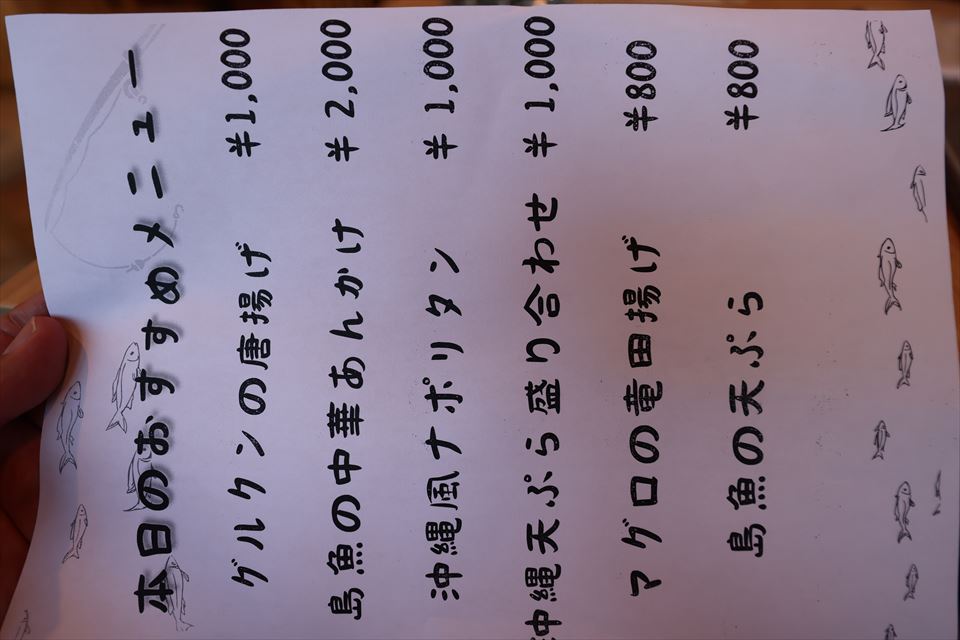 本日のおすすめメニュー
グルクンの唐揚げ ¥1,000
島魚の中華あんかけ ¥2,000
沖縄風ナポリタン ¥1,000
沖縄天ぷら盛り合わせ ¥1,000
マグロの竜田揚げ ¥800
島魚の天ぷら ¥800